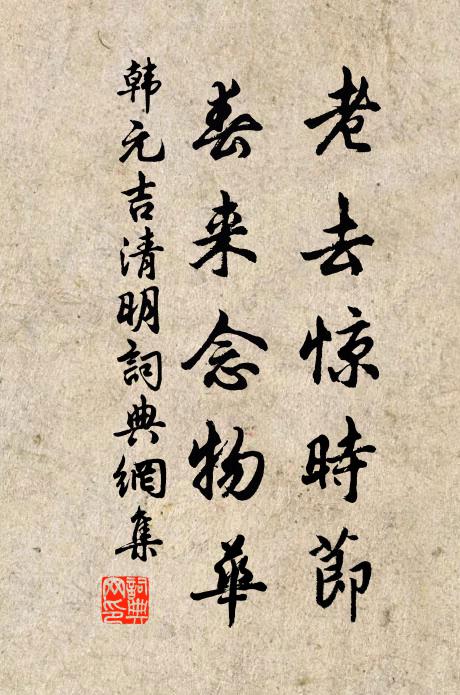 老去惊時節
春来念物華
韩元吉清明詞典網集
詞典
网印